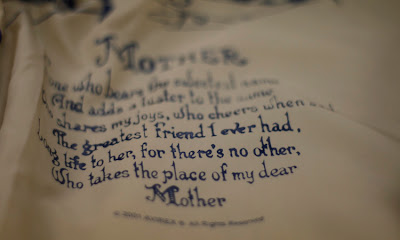 Mother
one who bears the sweetest name
And adds a luster to the same
shares my joys, who cheers when sad
The greatest friend I ever had.
Long life to her, for there's no other.
Who takes the place of my dear
Mother
© 2001 All Rights Reserved